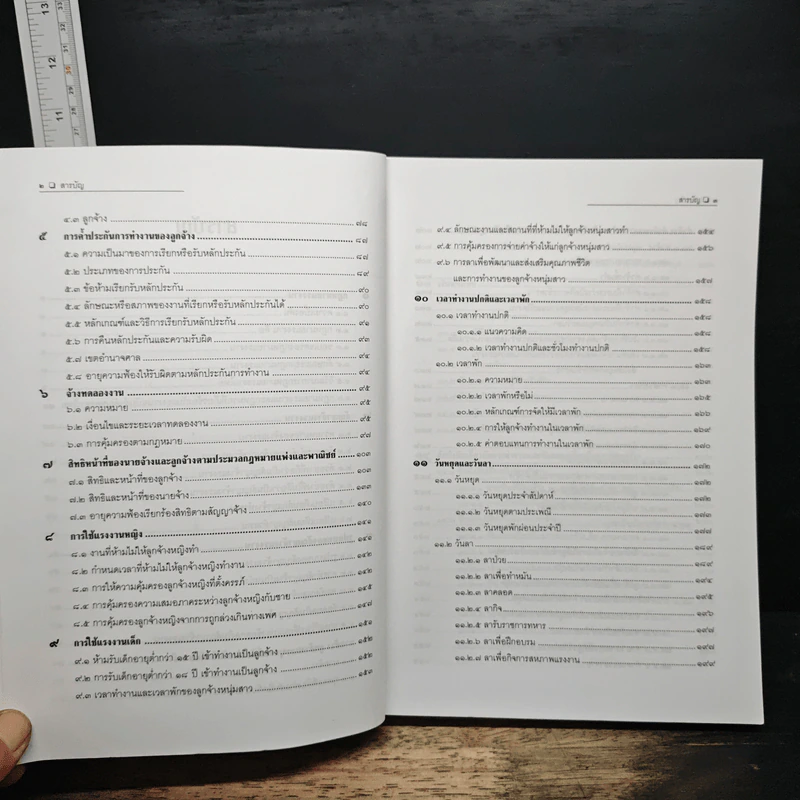 ๒ ❏ สารบัญ
๔.๓ ลูกจ้าง ๗๘
๕ การค้ำประกันการทำงานของลูกจ้าง ๘๗
๕.๑ ความเป็นมาของการเรียกหรือรับหลักประกัน ๘๗
๕.๒ ประเภทของการประกัน ๘๙
๕.๓ ข้อห้ามเรียกหรือรับหลักประกัน ๙๐
๕.๔ ลักษณะหรือสภาพของงานที่เรียกหรือรับหลักประกันได้ ๙๐
๕.๕ หลักเกณฑ์และวิธีการเรียกรับหลักประกัน ๙๑
๕.๖ การคืนหลักประกันและความรับผิด ๙๓
๕.๗ เขตอำนาจศาล ๙๔
๕.๘ อายุความฟ้องให้รับผิดตามหลักประกันการทำงาน ๙๔
๖ จ้างทดลองงาน ๙๕
๖.๑ ความหมาย ๙๕
๖.๒ เงื่อนไขและระยะเวลาทดลองงาน ๙๕
๖.๓ การคุ้มครองตามกฎหมาย ๙๗
๗ สิทธิหน้าที่ของนายจ้างและลูกจ้างตามประมวลกฎหมายแพ่งและพาณิชย์ ๑๐๓
๗.๑ สิทธิและหน้าที่ของลูกจ้าง ๑๐๓
๗.๒ สิทธิและหน้าที่ของนายจ้าง ๑๓๓
๗.๓ อายุความฟ้องเรียกร้องสิทธิตามสัญญาจ้าง ๑๔๐
๘ การใช้แรงงานหญิง ๑๔๑
๘.๑ งานที่ห้ามไม่ให้ลูกจ้างหญิงทำ ๑๔๑
๘.๒ กำหนดเวลาที่ห้ามไม่ให้ลูกจ้างหญิงทำงาน ๑๔๒
๘.๓ การให้ความคุ้มครองลูกจ้างหญิงที่ตั้งครรภ์ ๑๔๒
๘.๔ การคุ้มครองความเสมอภาคระหว่างลูกจ้างหญิงกับชาย ๑๔๕
๘.๕ การคุ้มครองลูกจ้างหญิงจากการถูกล่วงเกินทางเพศ ๑๔๗
๙ การใช้แรงงานเด็ก ๑๕๑
๙.๑ ห้ามรับเด็กอายุต่ำกว่า ๑๕ ปี เข้าทำงานเป็นลูกจ้าง ๑๕๒
๙.๒ การรับเด็กอายุต่ำกว่า ๑๘ ปี เข้าทำงานเป็นลูกจ้าง ๑๕๒
๙.๓ เวลาทำงานและเวลาพักของลูกจ้างหนุ่มสาว ๑๕๓
สารบัญ ❏ ๓
๙.๔ ลักษณะงานและสถานที่ที่ห้ามไม่ให้ลูกจ้างหนุ่มสาวทำ ๑๕๔
๙.๕ การคุ้มครองการจ่ายค่าจ้างให้แก่ลูกจ้างหนุ่มสาว ๑๕๖
๙.๖ การลาเพื่อพัฒนาและส่งเสริมคุณภาพชีวิต
และการทำงานของลูกจ้างหนุ่มสาว ๑๕๗
๑๐ เวลาทำงานปกติและเวลาพัก ๑๕๘
๑๐.๑ เวลาทำงานปกติ ๑๕๘
๑๐.๑.๑ แนวความคิด ๑๕๘
๑๐.๑.๒ เวลาทำงานปกติและชั่วโมงทำงานปกติ ๑๕๘
๑๐.๒ เวลาพัก ๑๖๓
๑๐.๒.๑ ความหมาย ๑๖๓
๑๐.๒.๒ เวลาพักหรือไม่ ๑๖๕
๑๐.๒.๓ หลักเกณฑ์การจัดให้มีเวลาพัก ๑๖๖
๑๐.๒.๔ การให้ลูกจ้างทำงานในเวลาพัก ๑๖๙
๑๐.๒.๕ ค่าตอบแทนการทำงานในเวลาพัก ๑๗๐
๑๑ วันหยุดและวันลา ๑๗๒
๑๑.๑ วันหยุด ๑๗๒
๑๑.๑.๑ วันหยุดประจำสัปดาห์ ๑๗๒
๑๑.๑.๒ วันหยุดตามประเพณี ๑๗๓
๑๑.๑.๓ วันหยุดพักผ่อนประจำปี ๑๗๗
๑๑.๒ วันลา ๑๘๙
๑๑.๒.๑ ลาป่วย ๑๘๙
๑๑.๒.๒ ลาเพื่อทำหมัน ๑๙๔
๑๑.๒.๓ ลาคลอด ๑๙๕
๑๑.๒.๔ ลากิจ ๑๙๖
๑๑.๒.๕ ลารับราชการทหาร ๑๙๗
๑๑.๒.๖ ลาเพื่อฝึกอบรม ๑๙๗
๑๑.๒.๗ ลาเพื่อกิจการสหภาพแรงงาน ๑๙๙
13
12
11